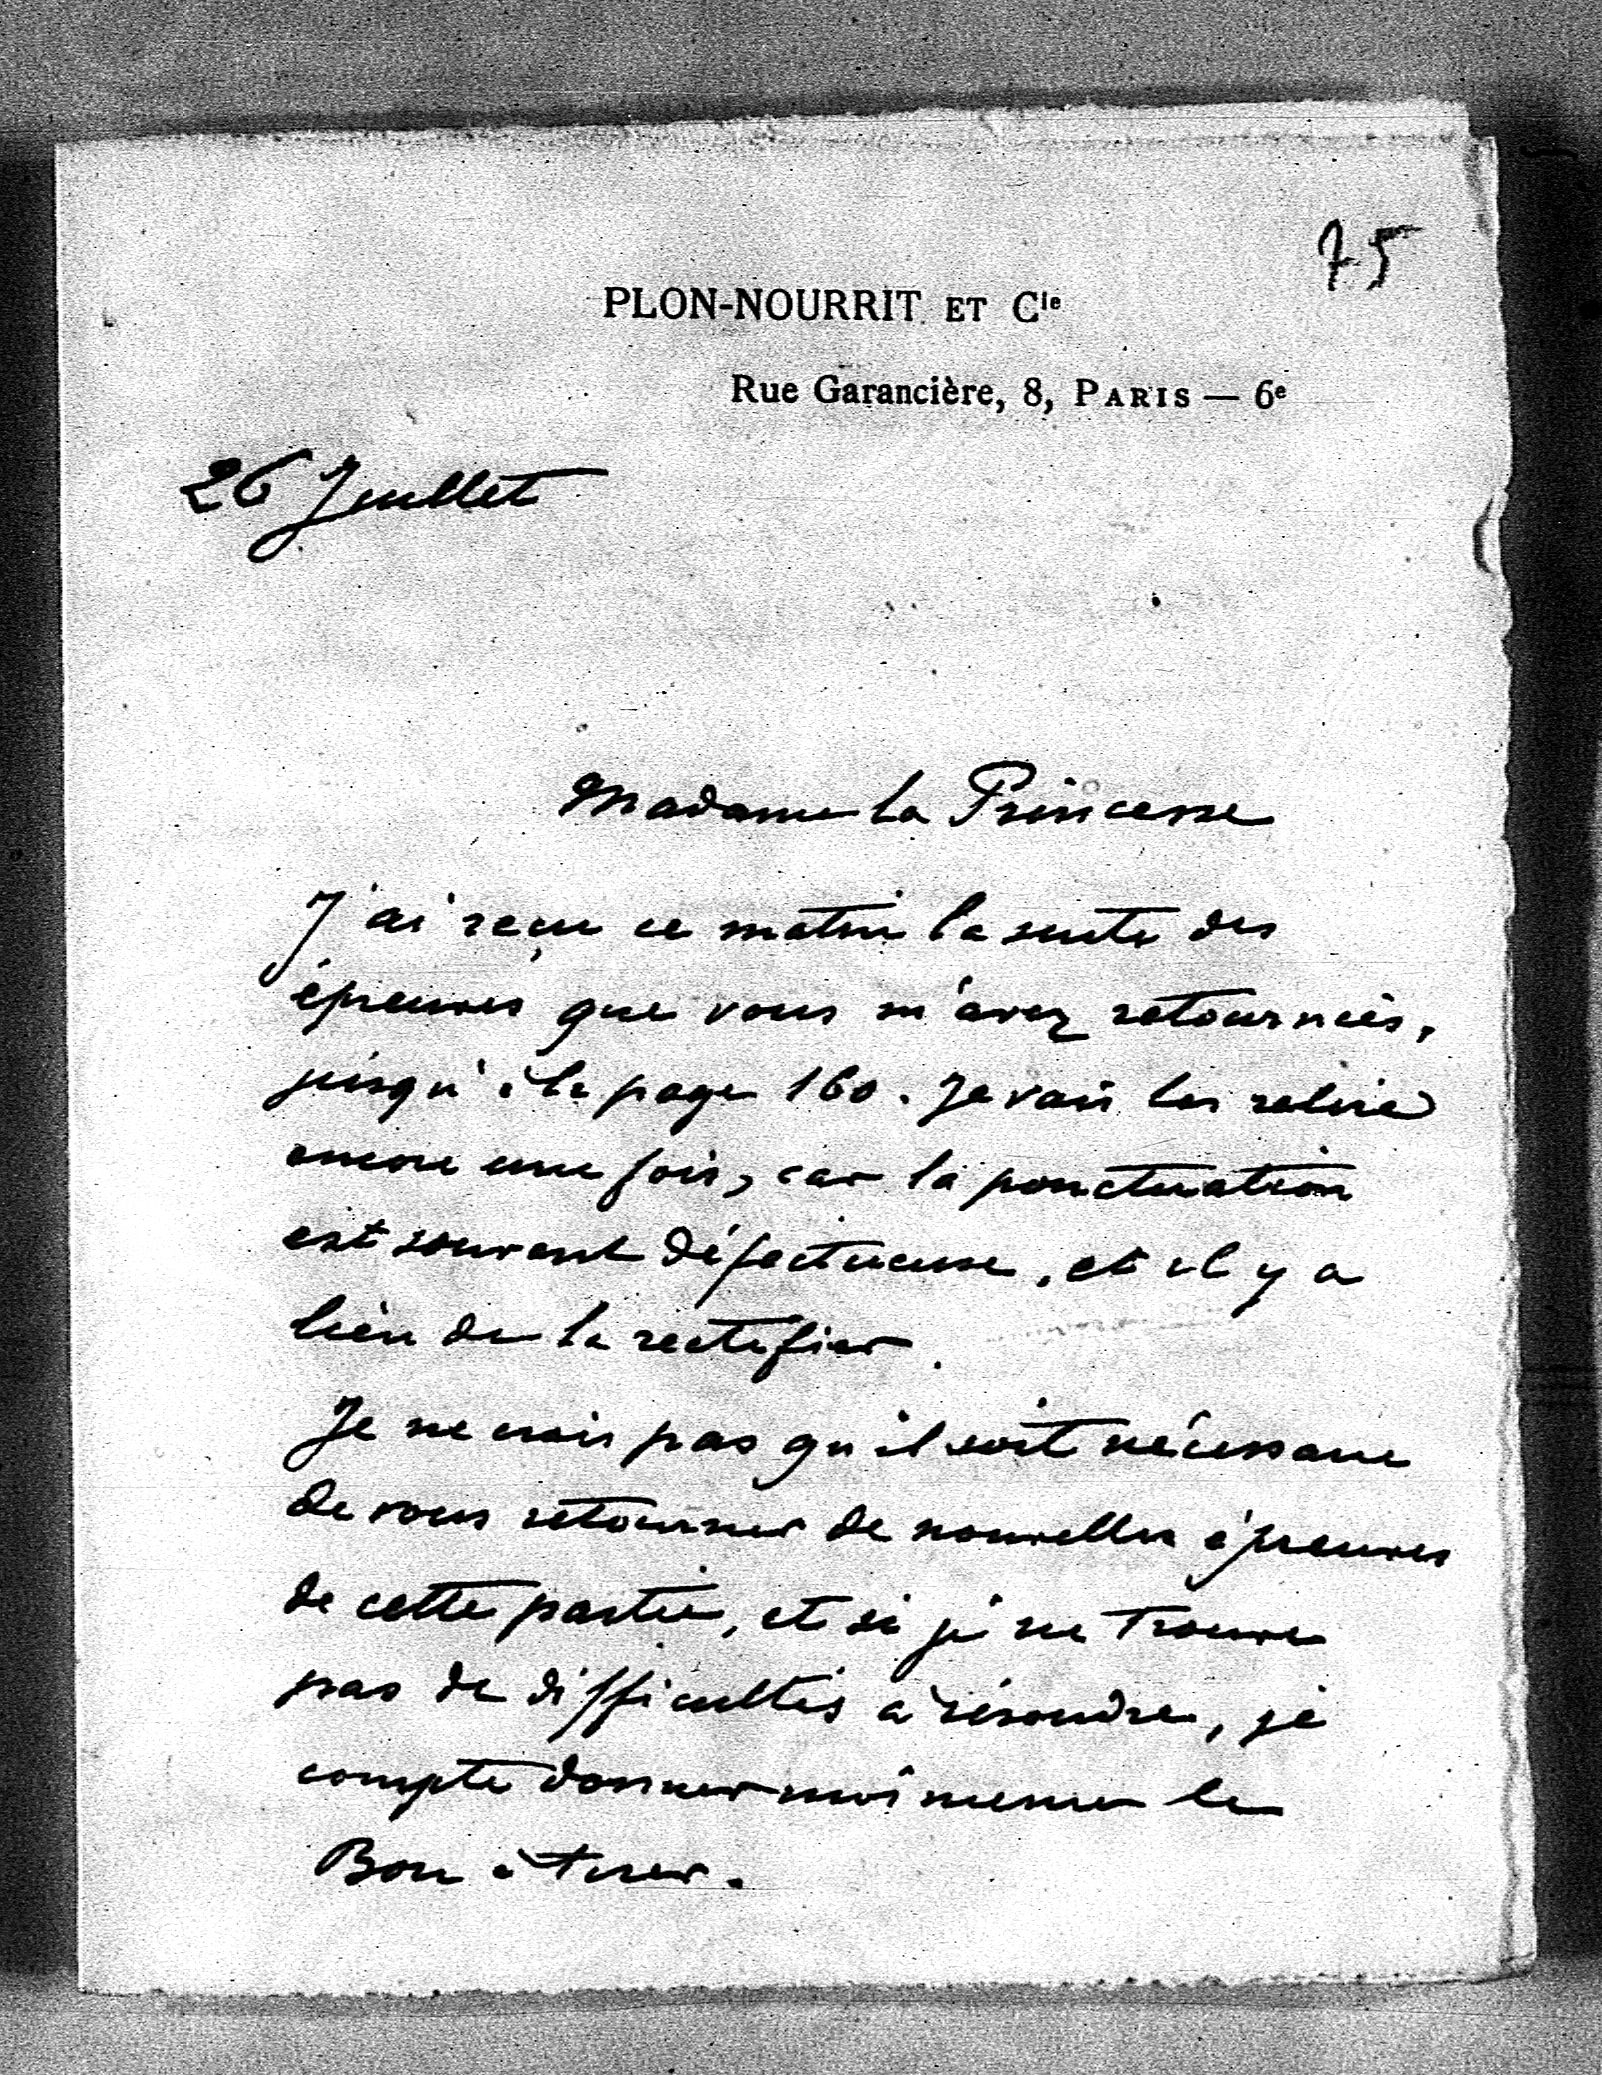 75
PLON-NOURRIT ET Cie
Rue Garancière, 8, PARIS — 6e
26 Juillet
Madame la Princesse
J'ai reçu ce matin la suite des
épreuves que vous m'avez retournées,
jusqu'à la page 160. Je vais les relire
encore une fois, car la ponctuation
est souvent défectueuse, et il y a
lieu de la rectifier.
Je ne crois pas qu'il soit nécessaire
de vous retourner de nouvelles épreuves
de cette partie, et si je ne trouve
pas de difficultés à résoudre, je
compte donner moi même le
Bon à tirer.